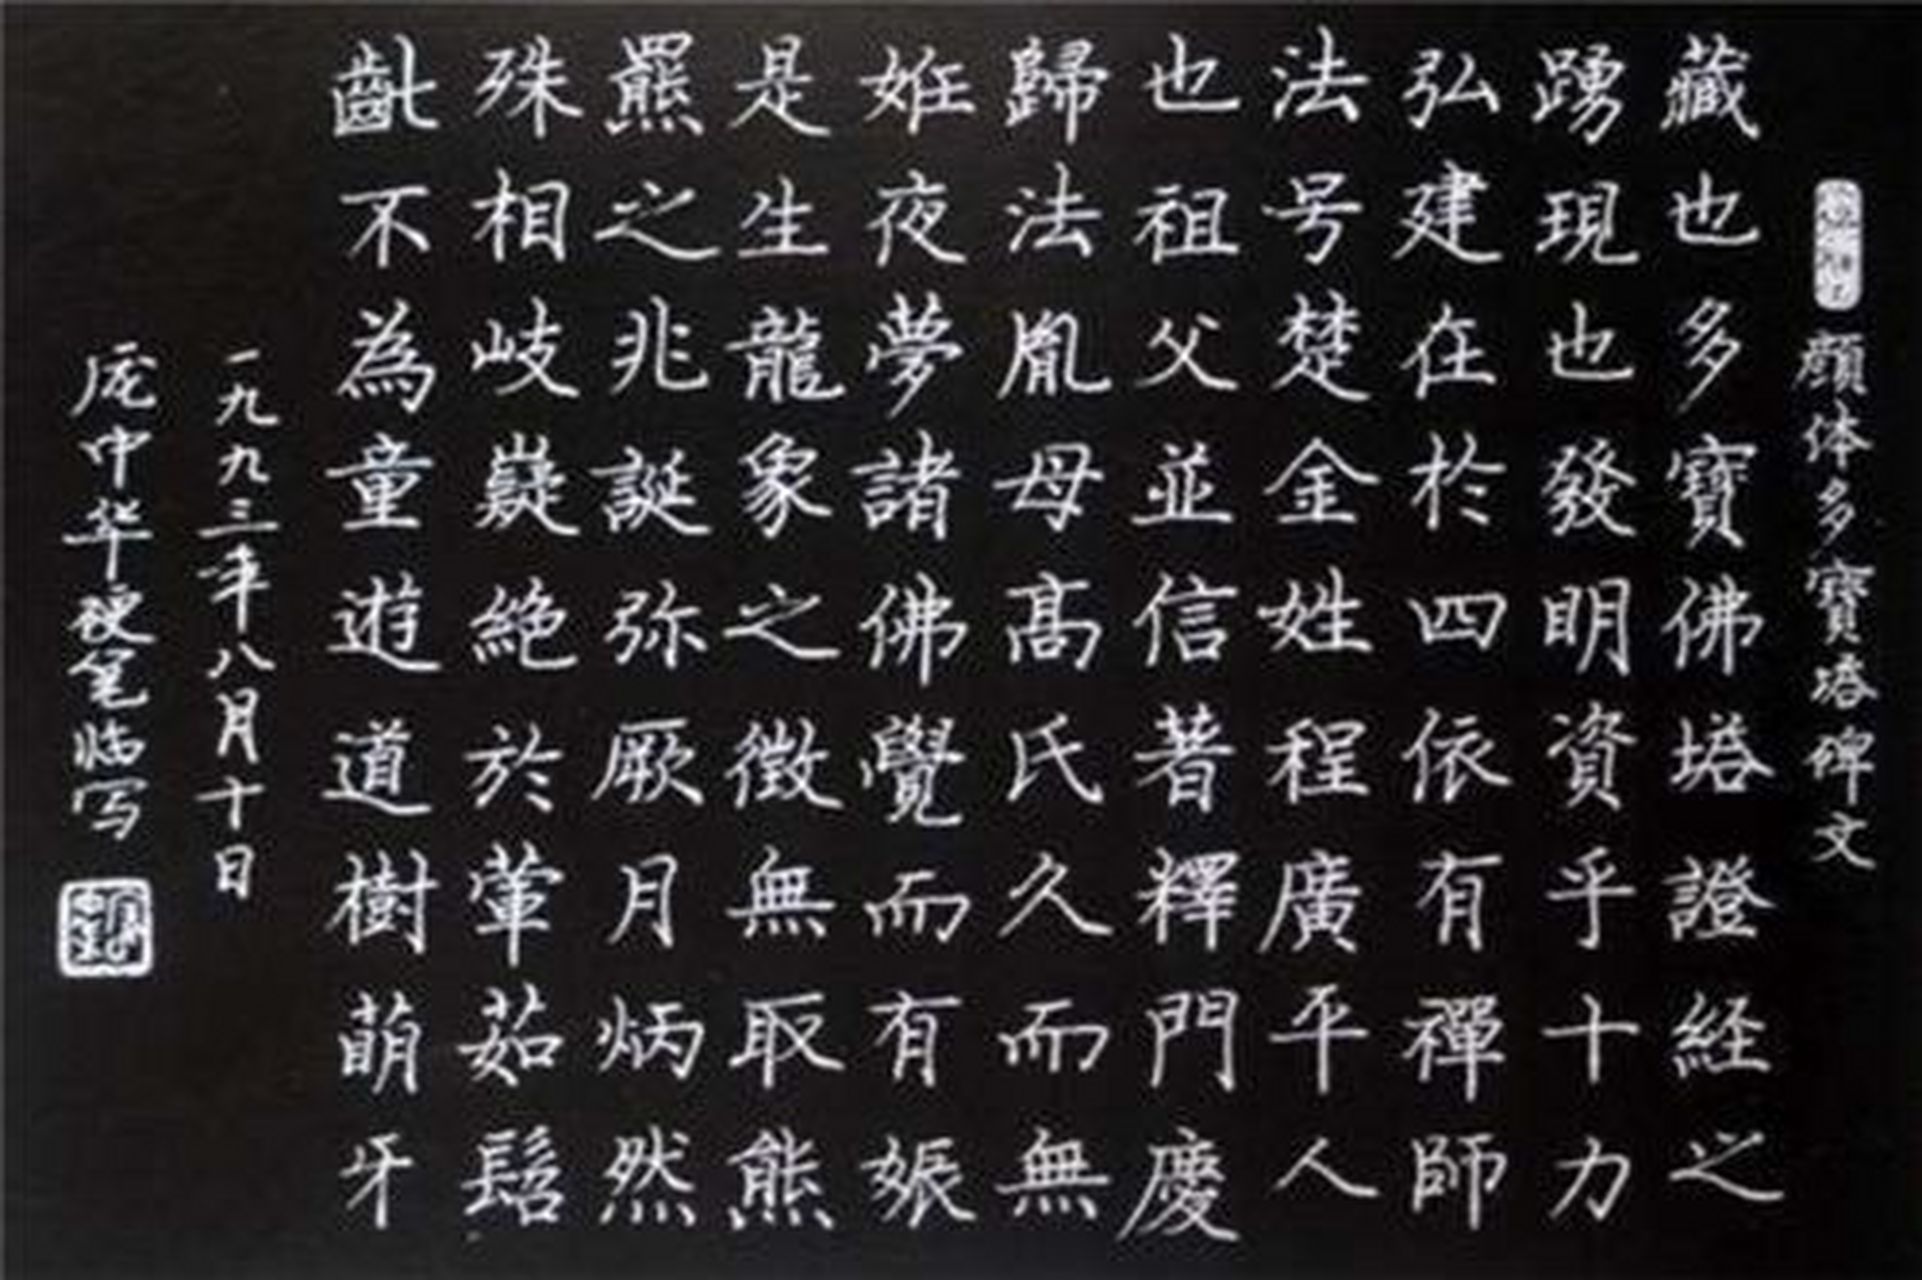 顔体多寶塔碑文
藏也多寶佛塔證経之
踴現也發明資乎十力
弘建在於四依有禪師
法号楚金姓程廣平人
也祖父並信著釋門慶
歸法胤母高氏久而無
姙夜夢諸佛覺而有娠
是生龍象之徵無取熊
羆之兆誕弥厥月炳然
殊相岐嶷絶於葷茹髫
齔不為童遊道樹萌牙
一九九三年八月十日
庞中华硬笔临写